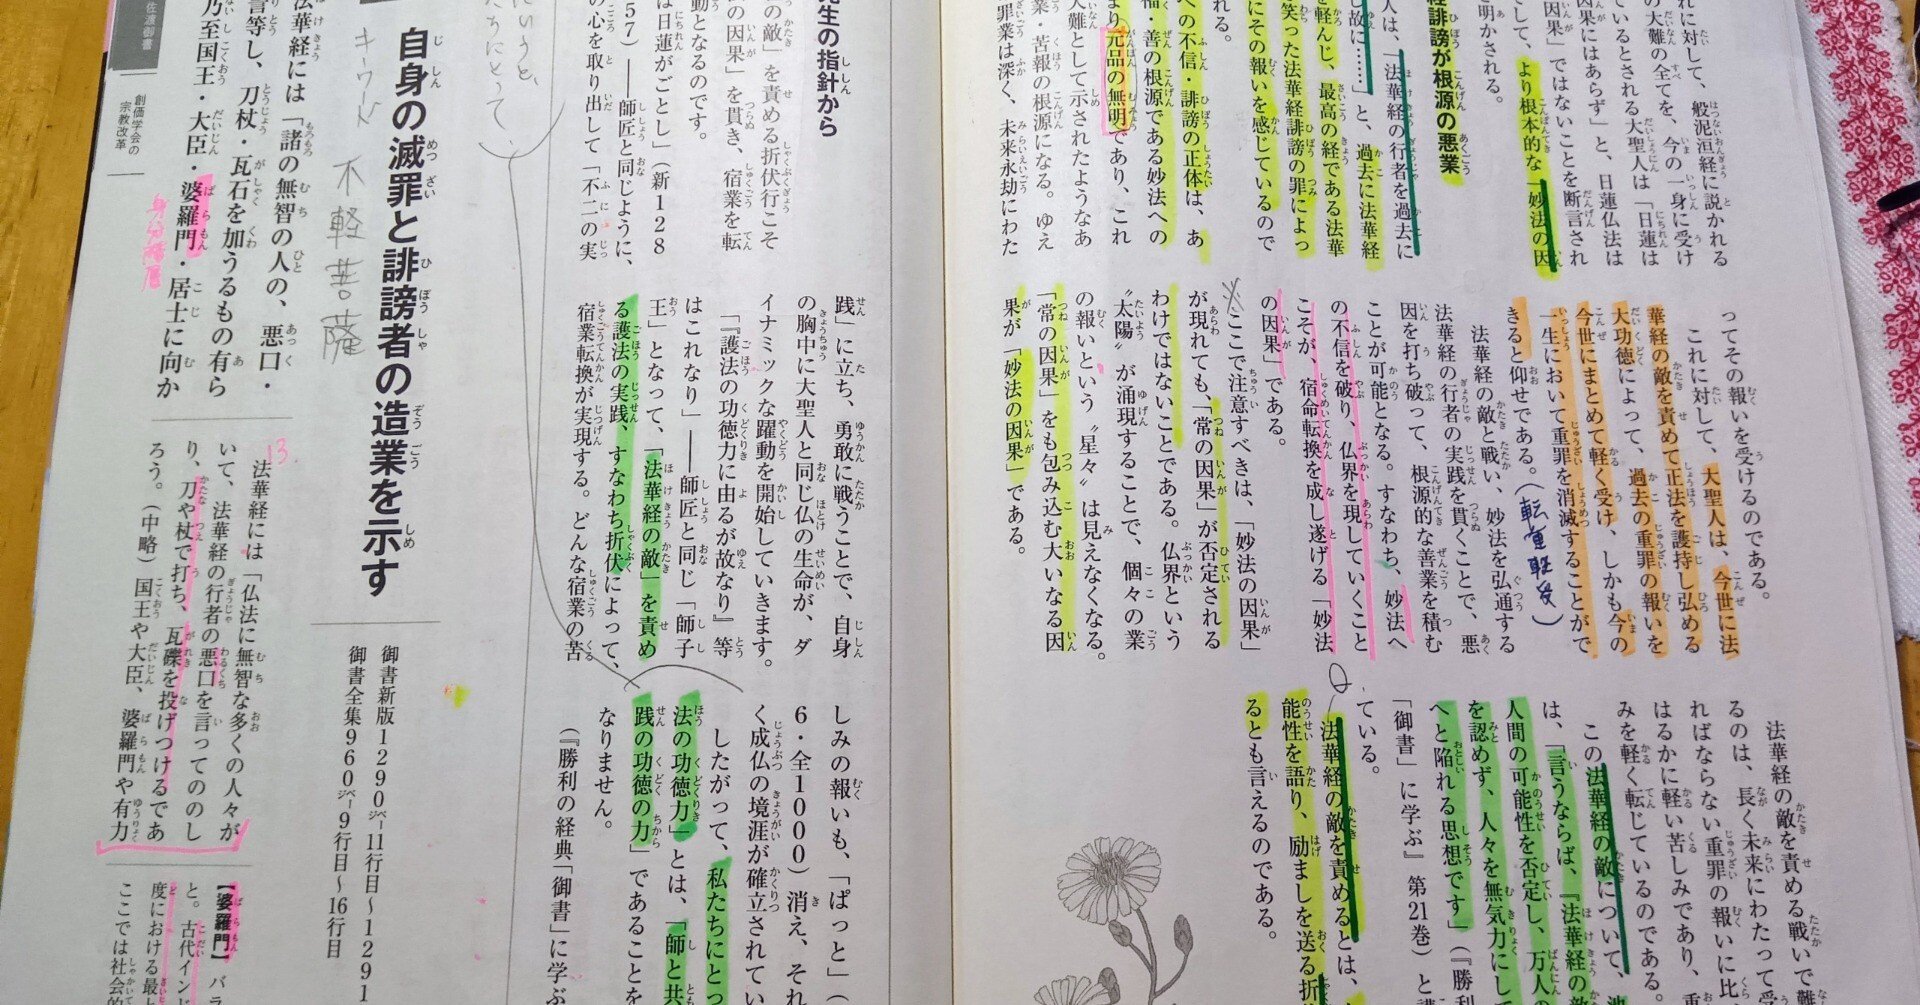 れに対して、般泥洹経に説かれる
の大難の全てを、今の一身に受け
ているとされる大聖人は「日蓮は
因果にはあらず」と、日蓮仏法は
因果」ではないことを断言され
して、より根本的な「妙法の因
明かされる。
経誹謗が根源の悪業
人は、「法華経の行者を過去に
し故に……」と、過去に法華経
を軽んじ、最高の経である法華
笑った法華経誹謗の罪によっ
にその報いを感じているので
れる。
への不信・誹謗の正体は、あ
福・善の根源である妙法への
まり元品の無明であり、これ
業・苦報の根源になる。ゆえ
大難として示されたようなあ
罪業は深く、未来永劫にわた
ってその報いを受けるのである。
これに対して、大聖人は、今世に法
華経の敵を責めて正法を護持し弘める
大功徳によって、過去の重罪の報いを
今世にまとめて軽く受け、しかも今の
一生において重罪を消滅することがで
きると仰せである。(転重軽受)
法華経の敵と戦い、妙法を弘通する
法華経の行者の実践を貫くことで、悪
因を打ち破って、根源的な善業を積む
ことが可能となる。すなわち、妙法へ
の不信を破り、仏界を現していくこと
こそが、宿命転換を成し遂げる「妙法
の因果」である。
ここで注意すべきは、「妙法の因果」
が現れても、「常の因果」が否定される
わけではないことである。仏界という
“太陽”が涌現することで、個々の業
の報いという“星々”は見えなくなる。
「常の因果」をも包み込む大いなる因
果が「妙法の因果」である。
法華経の敵を責める戦いで難
るのは、長く未来にわたって受
ればならない重罪の報いに比
はるかに軽い苦しみであり、重
みを軽く転じているのである。
この法華経の敵について、池
は、「言うならば、『法華経の敵
人間の可能性を否定し、万人の
を認めず、人々を無気力にして
へと陥れる思想です」(『勝利
「御書」に学ぶ』第21巻)と講
ている。
法華経の敵を責めるとは、
能性を語り、励ましを送る折
るとも言えるのである。
先生の指針から
の敵」を責める折伏行こそ
の因果」を貫き、宿業を転
動となるのです。
は日蓮がごとし」(新128
57)――師匠と同じように、
の心を取り出して「不二の実
践」に立ち、勇敢に戦うことで、自身
の胸中に大聖人と同じ仏の生命が、ダ
イナミックな躍動を開始していきます。
「『護法の功徳力に由るが故なり』等
はこれなり」――師匠と同じ「師子
王」となって、「法華経の敵」を責め
る護法の実践、すなわち折伏によって、
宿業転換が実現する。どんな宿業の苦
しみの報いも、「ぱっと」(
6・全1000)消え、それ
く成仏の境涯が確立されてい
したがって、私たちにとっ
法の功徳力」とは、「師と共
践の功徳の力」であることを
なりません。
(『勝利の経典「御書」に学ぶ
自身の滅罪と誹謗者の造業を示す
御書新版1290ページ11行目〜1291
御書全集960ページ9行目〜16行目
キーワード 不軽菩薩
法華経には「諸の無智の人の、悪口・
言等し、刀杖・瓦石を加うるもの有ら
乃至国王・大臣・婆羅門・居士に向か
13.
法華経には「仏法に無智な多くの人々が
いて、法華経の行者の悪口を言ってののし
り、刀や杖で打ち、瓦礫を投げつけるであ
ろう。(中略)国王や大臣、婆羅門や有力
【婆羅門】 バラ
と。古代インド
度における最
ここでは社会的
佐渡御書
創価学会の
宗教改革